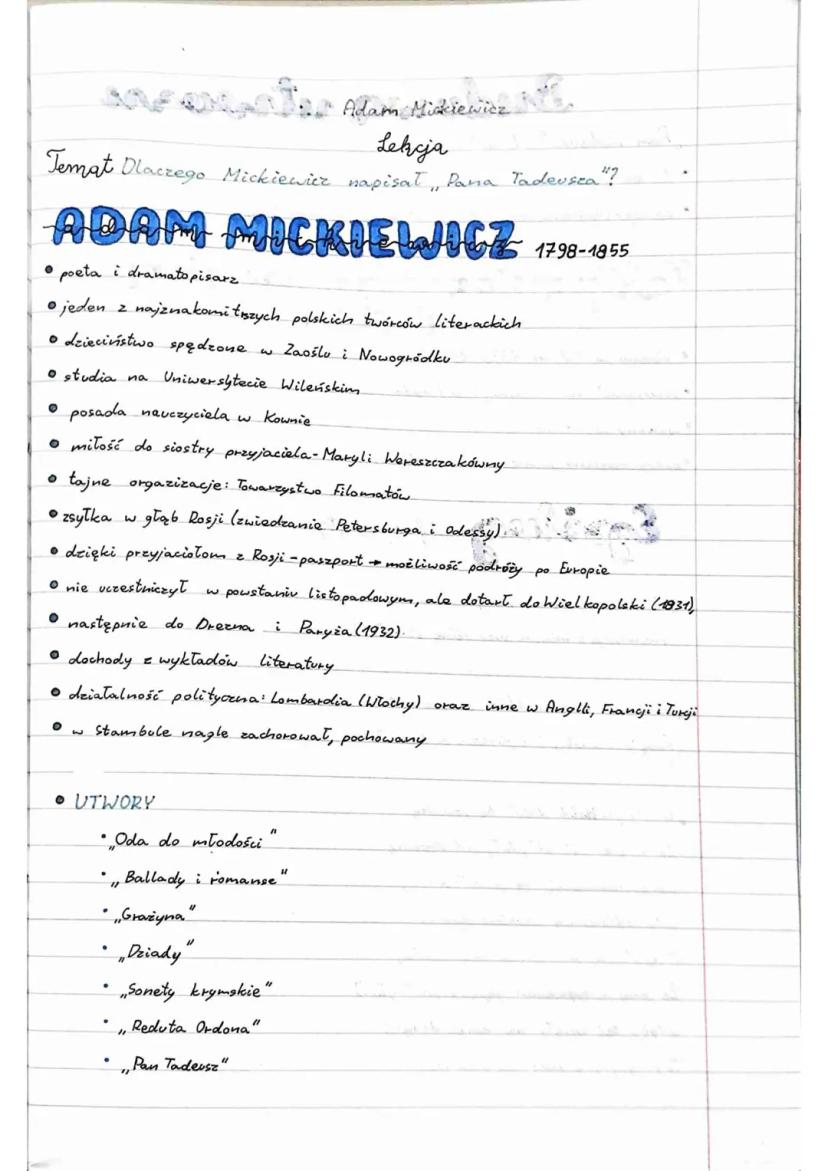 Adam Mickiewicz
Lekcja
Temat Dlaczego Mickiewicz napisał „Pana Tadeusza"?
ADAM MICKIEWICZ 1798-1855
• poeta i dramatopisarz
• jeden z najznakomitszych polskich twórców literackich
• dzieciństwo spędzone w Zaoślu i Nowogródku
• studia na Uniwersytecie Wileńskim
• posada nauczyciela w Kownie
• miłość do siostry przyjaciela - Maryli Wereszczakówny
• tajne orgazizacje: Towarzystwo Filomatów
• zsyłka w głąb Rosji (zwiedzanie Petersburga i Odessy)
• dzięki przyjaciołom z Rosji - paszport → możliwość podróży po Europie
• nie uczestniczył w powstaniu listopadowym, ale dotarł do Wielkopolski (1831),
• następnie do Drezna i Paryża (1932).
• dochody z wykładów literatury
• działalność polityczna: Lombardia (Włochy) oraz inne w Anglii, Francji i Turcji
• w Stambule nagle zachorował, pochowany
• UTWORY
• „Oda do młodości"
• „Ballady i romanse"
• „Grażyna"
• „Dziady"
• „Sonety krymskie"
• „Reduta Ordona"
• „Pan Tadeusz"